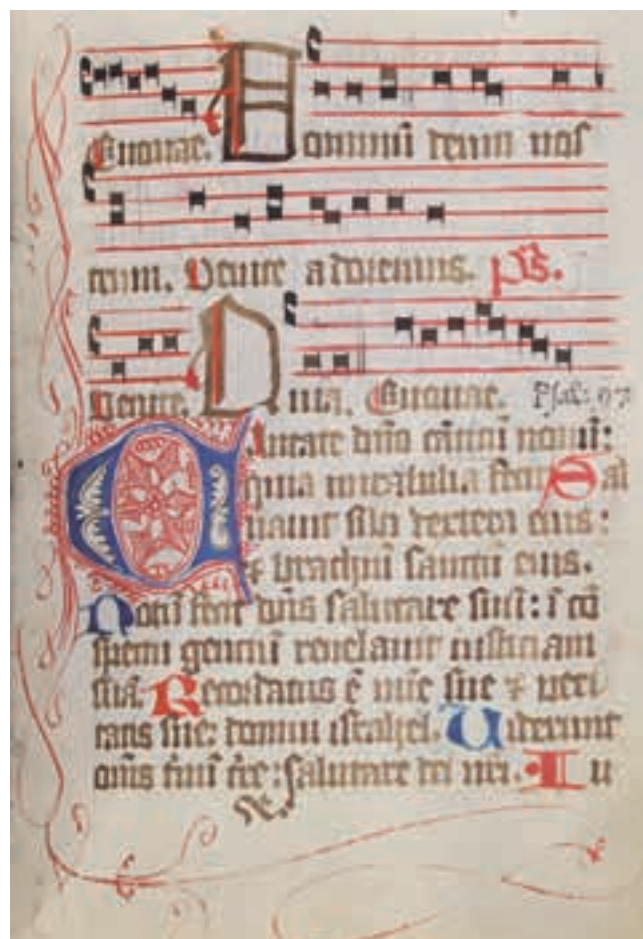 Euouae. Dominū deum nos
trum. Venite adoremus. Ps.
Venite. Euouae. Psal: 97
Cantate dño cāticū nouū:
quia mirabilia fecit Sal
uauit sibi dextera eius:
& brachiū sanctū eius.
Notū fecit dñs salutare suū: ī cō
spectu gentiū reuelauit iusticiam
suā. Recordatus ē mīe sue & veri
tatis sue: domui israhel. Viderunt
oms tmī tre: salutare dei nri. Iu